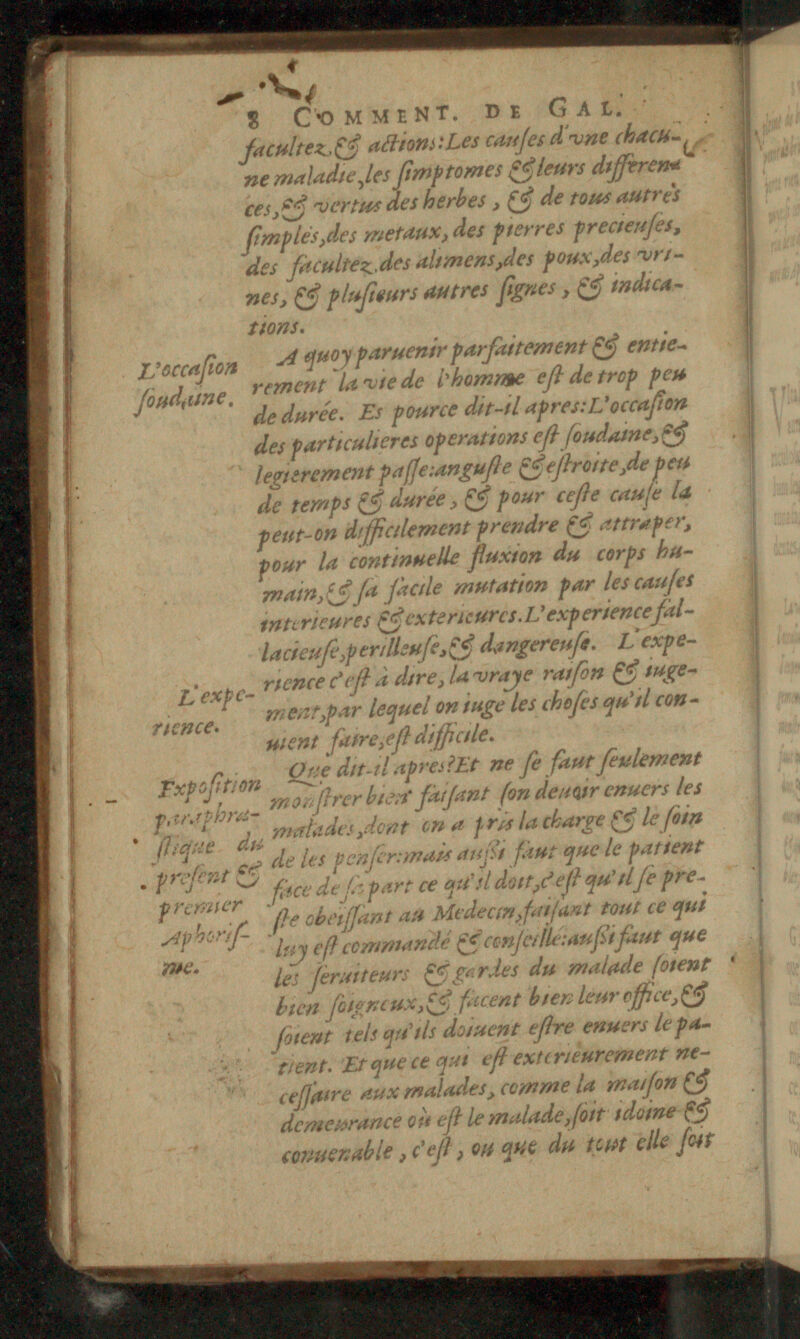 8 COMMENT. DE GAL.
facultez, & actions: Les causes d'vne chacu-
ne maladie, les simptomes & leurs differen-
ces, & vertus des herbes, & de tous autres
simples, des metaux, des pierres precieuses,
des facultez, des alimens, des poux, des vri-
nes, & plusieurs autres signes, & indica-
tions.
L'occasion
soudaine.
A quoy paruenir parfaitement & entie-
rement la vie de l'homme est de trop peu
de durée. Es pource dit-il apres: L'occasion
des particulieres operations est soudaine, &
legierement passe: anguste & estroite, de peu
de temps & durée, & pour ceste cause la
peut-on difficilement prendre & attraper,
pour la continuelle fluxion du corps hu-
main, & sa facile mutation par les causes
interieures & exterieures. L'experience fal-
lacieuse, perilleuse, & dangereuse. L'expe-
L'expe-
rience.
rience c'est à dire, la vraye raison & iuge-
ment, par lequel on iuge les choses qu'il con-
uient faire, est difficile.
Exposition
paraphra-
stique du
present &
premier
Aphoris-
me.
Que dit-il apres? Et ne se faut seulement
monstrer bien faisant son deuoir enuers les
malades, dont on a pris la charge & le soin
de les penser: mais aussi faut que le patient
face de sa part ce qu'il doit, c'est qu'il se pre-
ste obeissant au Medecin, faisant tout ce qui
luy est commandé & conseillé: aussi faut que
les seruiteurs & gardes du malade soient
bien soigneux, & facent bien leur office, &
soient tels qu'ils doiuent estre enuers le pa-
tient. Et que ce qui est exterieurement ne-
cessaire aux malades, comme la maison &
demeurance où est le malade, soit idoine &
conuenable, c'est, ou que du tout elle soit